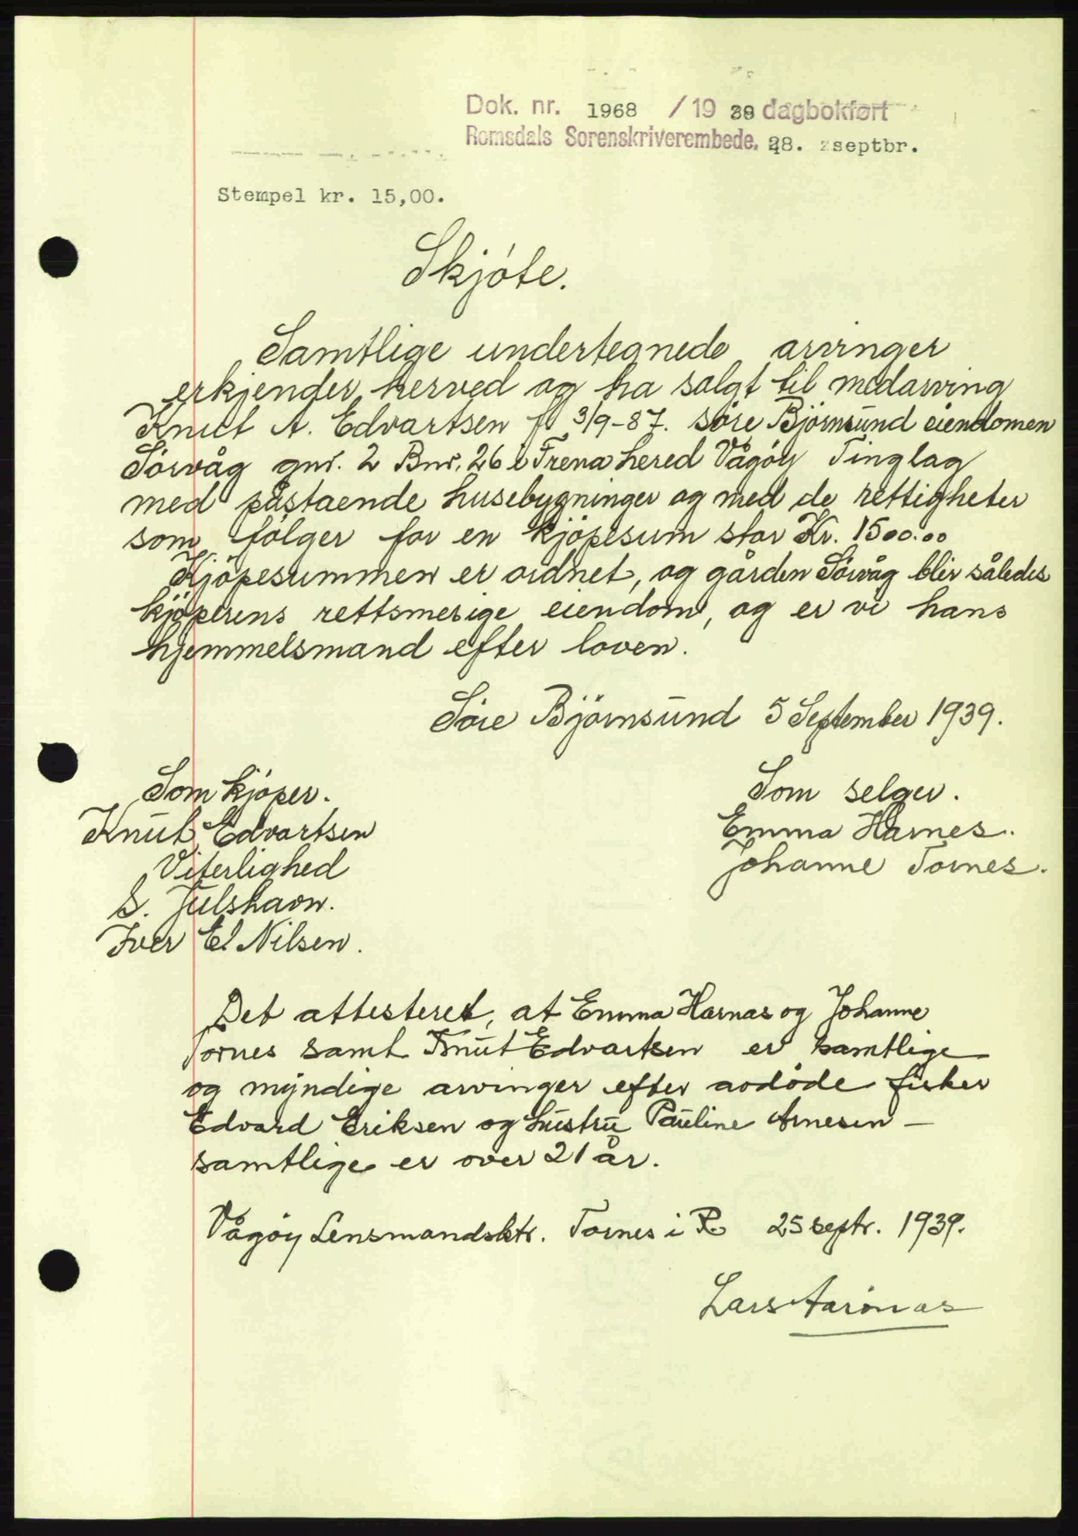 Dok. nr. 1968 / 19 39 dagbokført
Romsdals Sorenskriverembede. 28. septbr.
Stempel kr. 15,00.
Skjóte.
Samtlige undertegnede arvinger
erkjender herved og ha solgt til medarving
Knut A. Edvartsen f 3/9-87. söre Björnsund eiendomen
Sörvåg gnr. 2 Bnr. 26 i Frena hered Vågöy Tinglag
med påstaende husebygninger og med de rettigheter
som fölger for en kjöpesum stor Kr. 1500.00
Kjöpesummen er ordnet, og gården Sörvåg blir således
kjöperens rettsmesige eiendom, og er vi hans
hjemmelsmand efter loven.
Söre Björnsund 5 September 1939.
Som kjöper.
Knut Edvartsen
Viterlighed
S. Julshavn.
Iver El Nilsen.
Som selger.
Emma Harnes.
Johanne Tornes.
Det attesteret, at Emma Harnas og Johanne
Tornes samt Knut Edvartsen er samtlige
og myndige arvinger efter avdöde fisker
Edvard Eriksen og hustru Pauline Arnesen —
samtlige er over 21 år.
Vågöy Lensmandsktr. Tornes i R 25 septr. 1939.
Lars Aarönæs